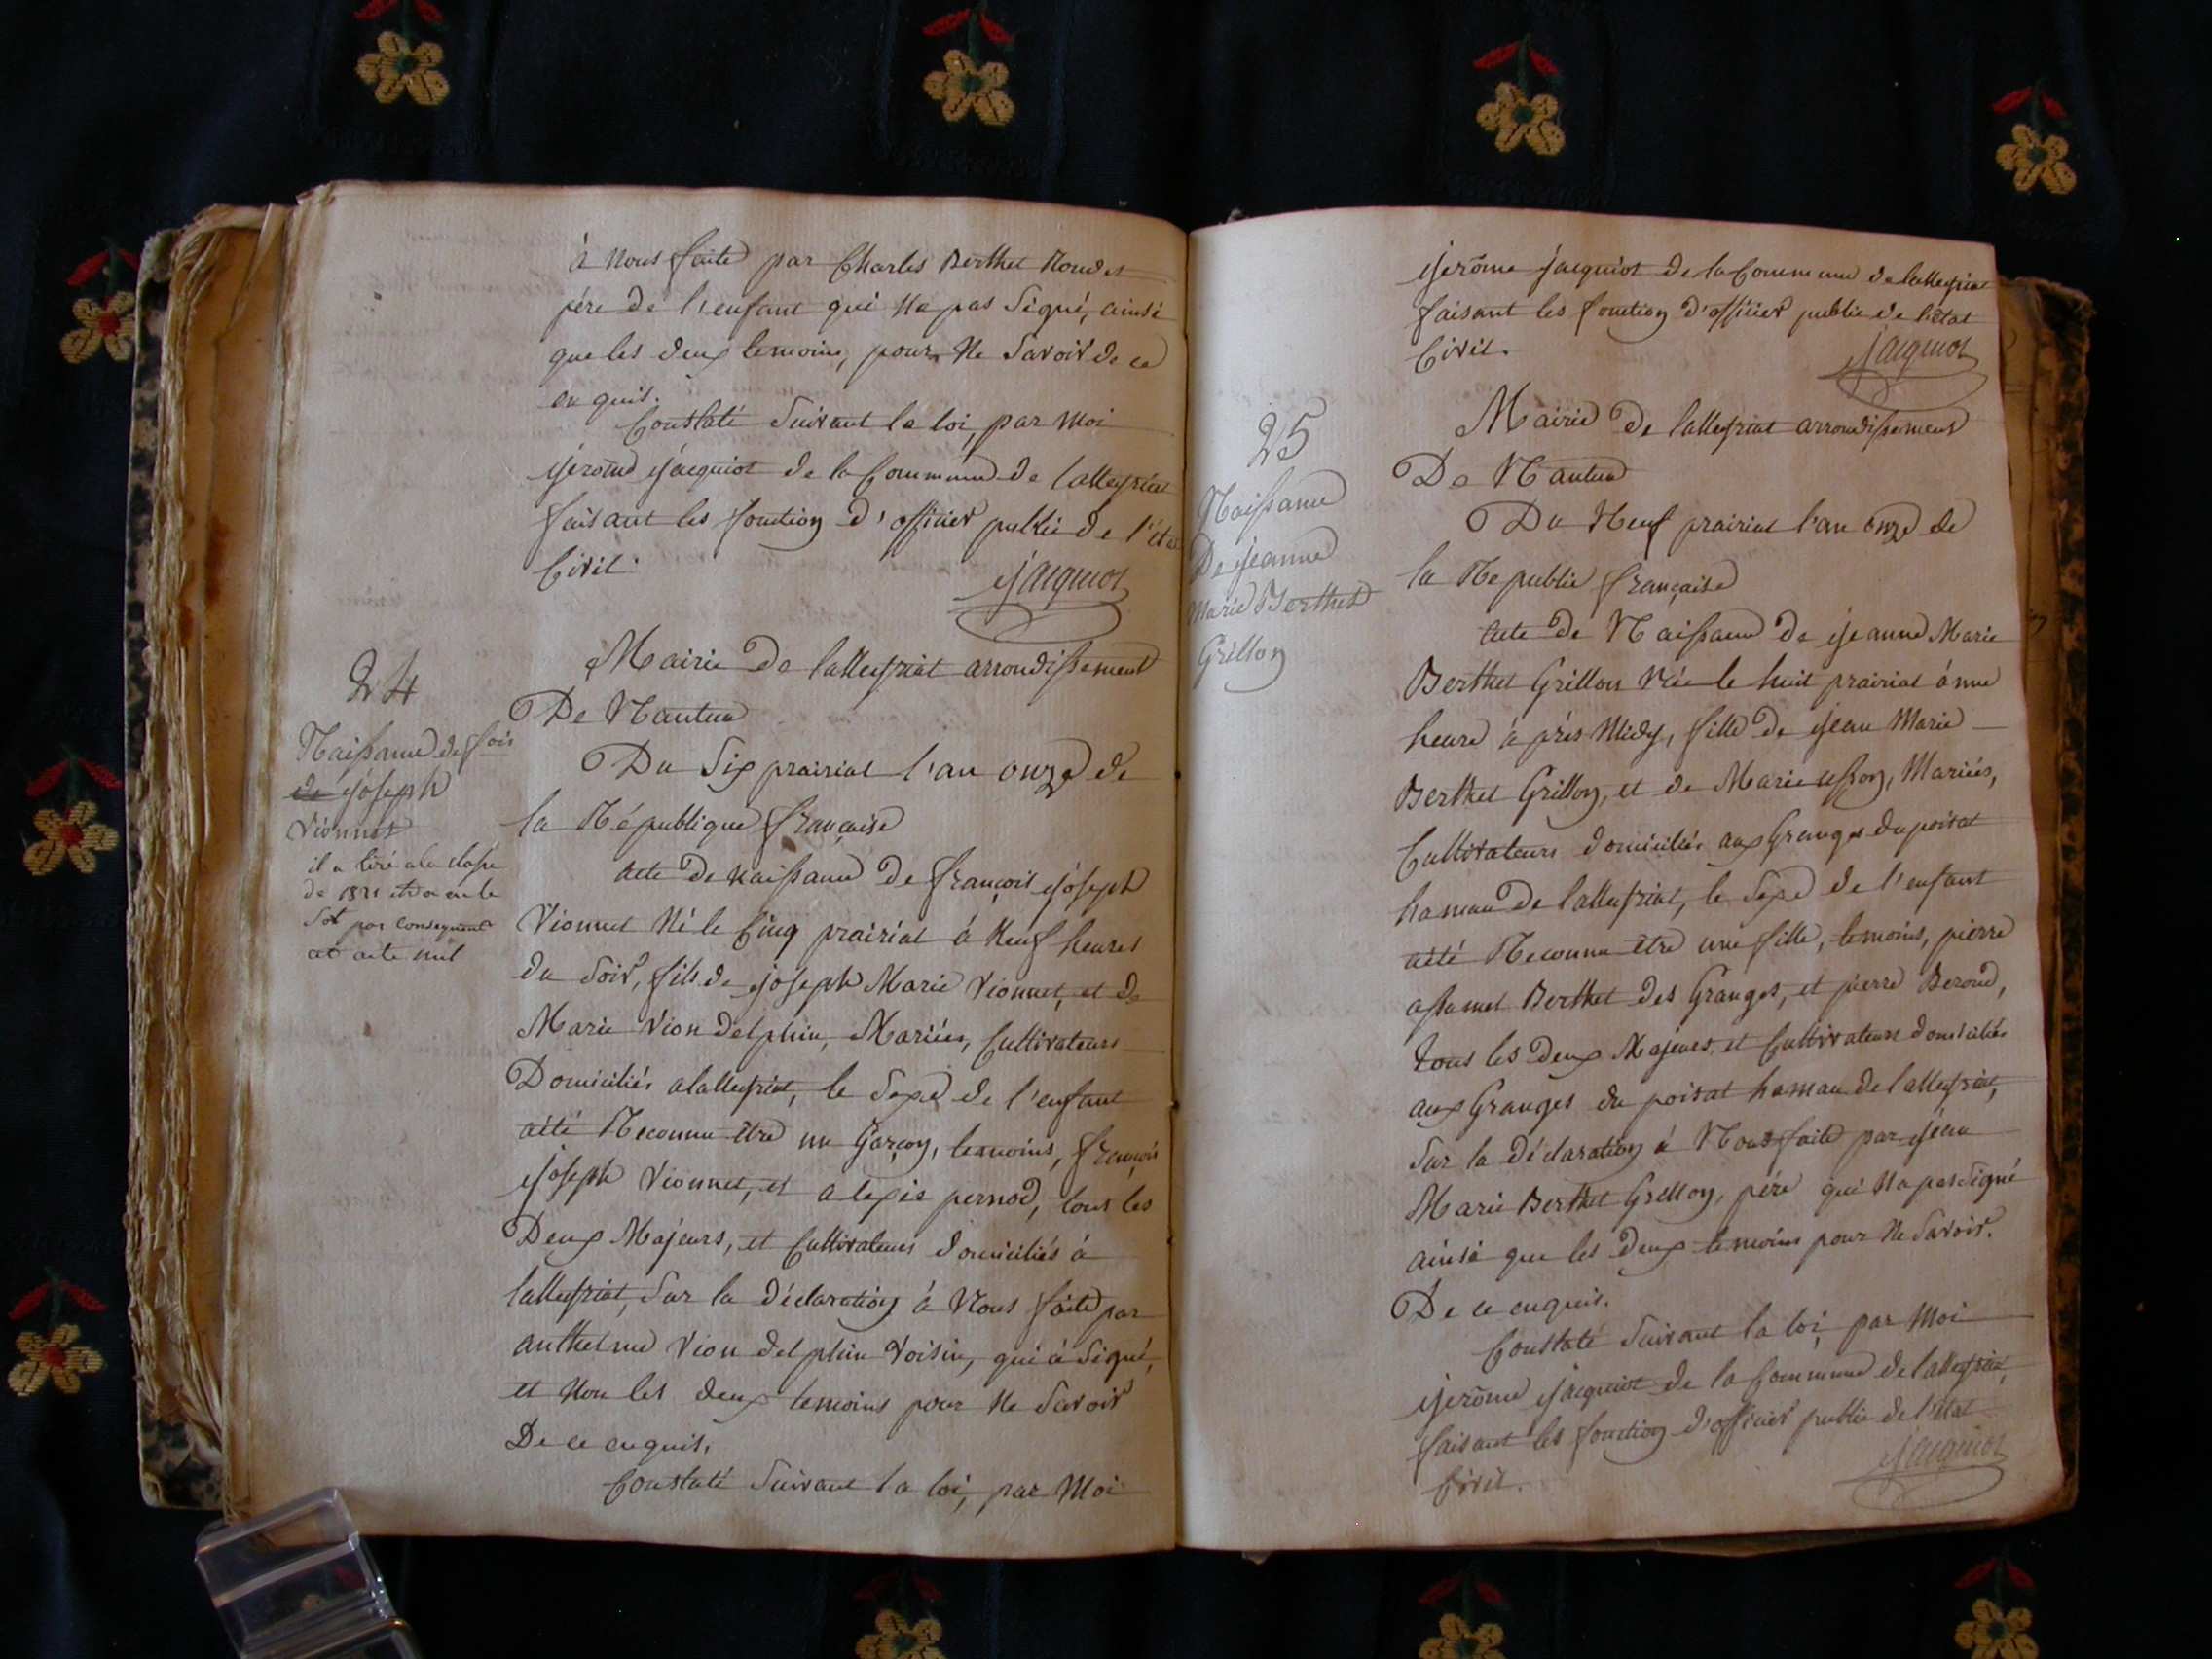 à nous faite par Charles Berthet Roudet
pére de l'enfant qui na pas Signé, ainsi
que les deux temoins, pour Ne Savoir de ce
enquis.
Constaté Suivant la loi, par Moi
jerôme jacquiot de la Commune de lalleyriat
faisant les fonction d'officier public de l'état
Civil.
jacquiot
24
Naissance de fois
de joseph
Vionnet
il a tiré a la classe
de 1821
Sot par consequent
cet acte nul
Mairie De lalleyriat arrondissement
De Nantua
Du Six prairial l'an onze de
la République française
acte De naissance De françois joseph
Vionnet Né le Cinq prairial à Neuf heures
du Soir, fils de joseph Marie Vionnet, et de
Marie Vion delphin, Mariées, Cultivateurs
Domiciliés a lalleyriat, le Sexe de l'enfant
aété Reconnu être un Garçon, temoins, françois
joseph Vionnet, et alexis pernod, tous les
Deux Majeurs, et Cultivateurs domiciliés à
lalleyriat, Sur la déclaration à Nous faite par
anthelme Vion delphin Voisin, qui à Signé,
et Non les deux temoins pour Ne Savoir
De ce enquis.
Constaté Suivant la loi, par Moi
jerôme jacquiot de la Commune de lalleyriat
faisant les fonction d'officier public de l'état
Civil.
jacquiot
25
Naissance
De jeanne
Marie Berthet
Grillon
Mairie De lalleyriat arrondissement
De Nantua
Du Neuf prairial l'an onze de
la Republic française
acte de Naissance de jeanne Marie
Berthet Grillon Née le huit prairial à une
heure à près Midy, fille de jean Marie
Berthet Grillon, et de Marie Mariées,
Cultivateurs domiciliés aux Granges du poizat
hameau de lalleyriat, le Sexe de l'enfant
aété Reconnu être une fille, temoins, pierre
Berthet des Granges, et pierre Beroud,
tous les Deux Majeurs, et Cultivateurs domiciliés
aux Granges du poizat hameau de lalleyriat,
Sur la Déclaration à Nous faite par jean
Marie Berthet Grillon, pére qui Na pas Signé
ainsi que les Deux temoins pour Ne Savoir.
De ce enquis.
Constaté Suivant la loi, par Moi
jerôme jacquiot de la Commune de lalleyriat,
faisant les fonction d'officier public de l'état
Civil.
jacquiot